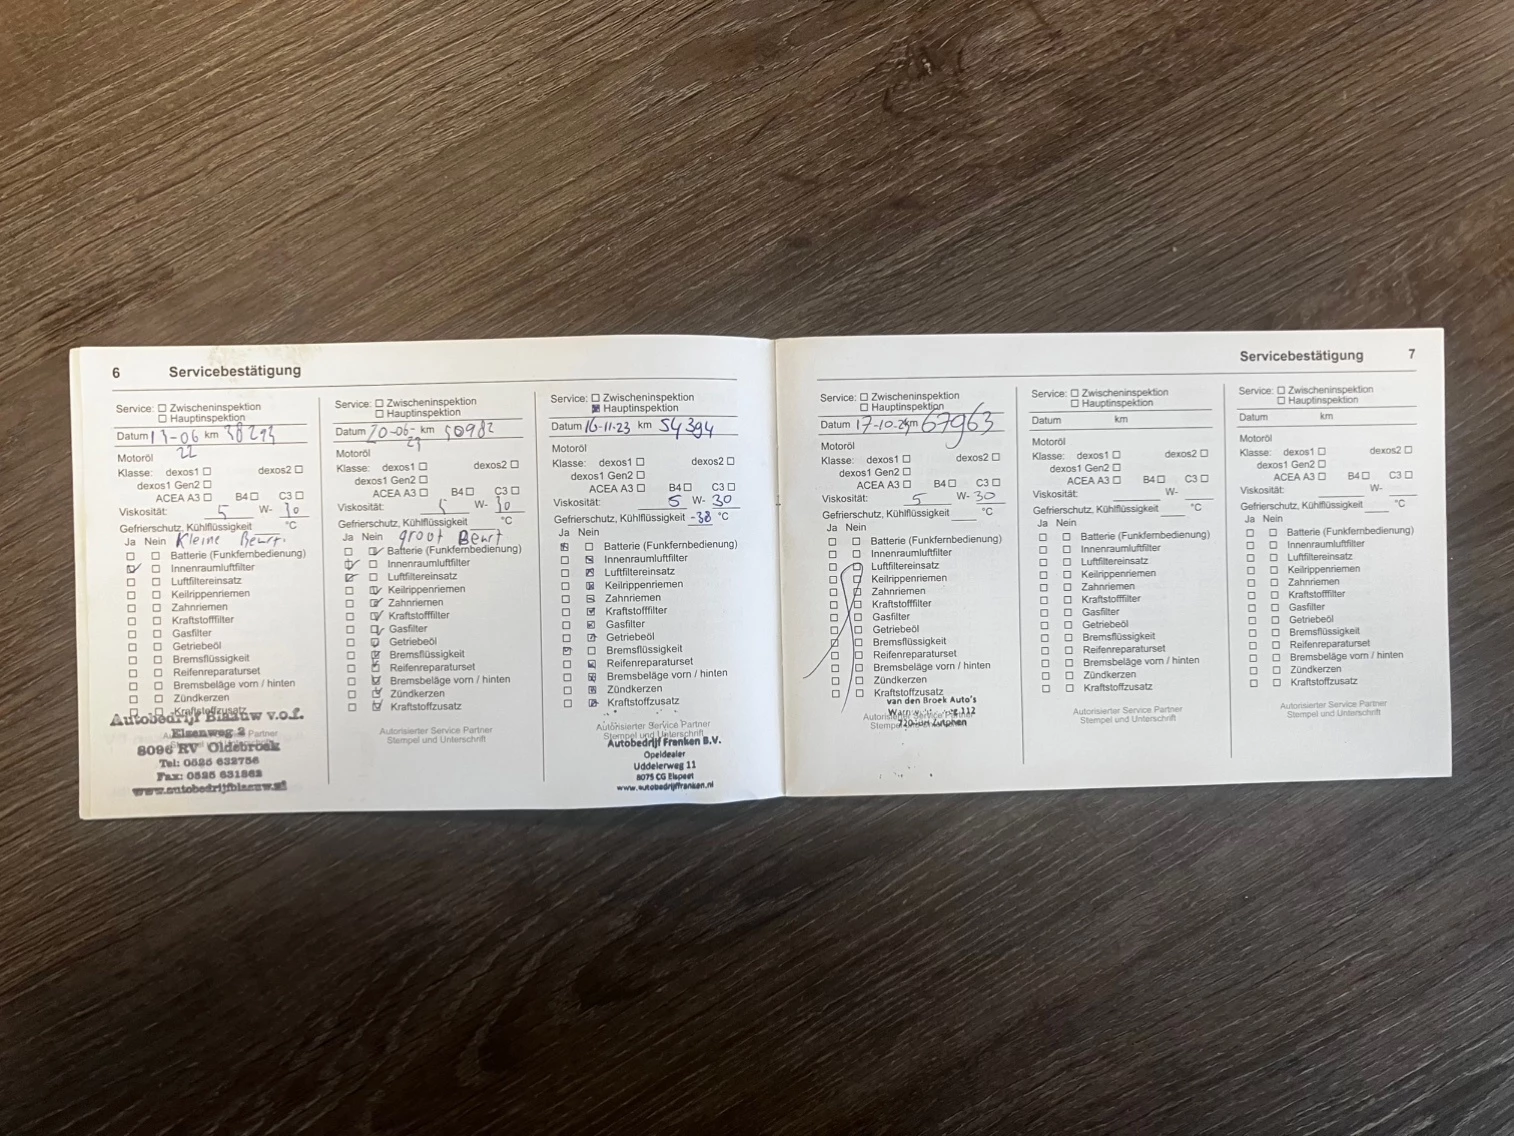 6 Servicebestätigung
Service: Zwischeninspektion
Hauptinspektion
Datum 13-06 km 38293
22
Motoröl
Klasse: dexos1 dexos2
dexos1 Gen2
ACEA A3 B4 C3
Viskosität: 5 W- 30
Gefrierschutz, Kühlflüssigkeit °C
Ja Nein Kleine Beurt.
Batterie (Funkfernbedienung)
Innenraumluftfilter
Luftfiltereinsatz
Keilrippenriemen
Zahnriemen
Kraftstofffilter
Gasfilter
Getriebeöl
Bremsflüssigkeit
Reifenreparaturset
Bremsbeläge vorn / hinten
Zündkerzen
Kraftstoffzusatz
Autobedrijf Blaauw v.o.f.
Partner
Eisenweg 2
8096 RV Oldebroek
Tel: 0525 632756
Fax: 0525 631862
www.autobedrijfblaauw.nl
Service: Zwischeninspektion
Hauptinspektion
Datum 20-06- km 50982
23
Motoröl
Klasse: dexos1 dexos2
dexos1 Gen2
ACEA A3 B4 C3
Viskosität: 5 W- 30
Gefrierschutz, Kühlflüssigkeit °C
Ja Nein groot Beurt
Batterie (Funkfernbedienung)
Innenraumluftfilter
Luftfiltereinsatz
Keilrippenriemen
Zahnriemen
Kraftstofffilter
Gasfilter
Getriebeöl
Bremsflüssigkeit
Reifenreparaturset
Bremsbeläge vorn / hinten
Zündkerzen
Kraftstoffzusatz
Autorisierter Service Partner
Stempel und Unterschrift
Service: Zwischeninspektion
Hauptinspektion
Datum 16-11-23 km 54394
Motoröl
Klasse: dexos1 dexos2
dexos1 Gen2
ACEA A3 B4 C3
Viskosität: 5 W- 30
Gefrierschutz, Kühlflüssigkeit -38 °C
Ja Nein
Batterie (Funkfernbedienung)
Innenraumluftfilter
Luftfiltereinsatz
Keilrippenriemen
Zahnriemen
Kraftstofffilter
Gasfilter
Getriebeöl
Bremsflüssigkeit
Reifenreparaturset
Bremsbeläge vorn / hinten
Zündkerzen
Kraftstoffzusatz
Autorisierter Service Partner
Stempel und Unterschrift
Autobedrijf Franken B.V.
Opeldealer
Uddelerweg 11
8075 CG Elspeet
www.autobedrijffranken.nl
Servicebestätigung 7
Service: Zwischeninspektion
Hauptinspektion
Datum 17-10-24 km 67963
Motoröl
Klasse: dexos1 dexos2
dexos1 Gen2
ACEA A3 B4 C3
Viskosität: 5 W- 30
Gefrierschutz, Kühlflüssigkeit °C
Ja Nein
Batterie (Funkfernbedienung)
Innenraumluftfilter
Luftfiltereinsatz
Keilrippenriemen
Zahnriemen
Kraftstofffilter
Gasfilter
Getriebeöl
Bremsflüssigkeit
Reifenreparaturset
Bremsbeläge vorn / hinten
Zündkerzen
Kraftstoffzusatz
van den Broek Auto's
112
Autorisierter Service Partner
Zutphen
Service: Zwischeninspektion
Hauptinspektion
Datum km
Motoröl
Klasse: dexos1 dexos2
dexos1 Gen2
ACEA A3 B4 C3
Viskosität: W-
Gefrierschutz, Kühlflüssigkeit °C
Ja Nein
Batterie (Funkfernbedienung)
Innenraumluftfilter
Luftfiltereinsatz
Keilrippenriemen
Zahnriemen
Kraftstofffilter
Gasfilter
Getriebeöl
Bremsflüssigkeit
Reifenreparaturset
Bremsbeläge vorn / hinten
Zündkerzen
Kraftstoffzusatz
Autorisierter Service Partner
Stempel und Unterschrift
Service: Zwischeninspektion
Hauptinspektion
Datum km
Motoröl
Klasse: dexos1 dexos2
dexos1 Gen2
ACEA A3 B4 C3
Viskosität: W-
Gefrierschutz, Kühlflüssigkeit °C
Ja Nein
Batterie (Funkfernbedienung)
Innenraumluftfilter
Luftfiltereinsatz
Keilrippenriemen
Zahnriemen
Kraftstofffilter
Gasfilter
Getriebeöl
Bremsflüssigkeit
Reifenreparaturset
Bremsbeläge vorn / hinten
Zündkerzen
Kraftstoffzusatz
Autorisierter Service Partner
Stempel und Unterschrift